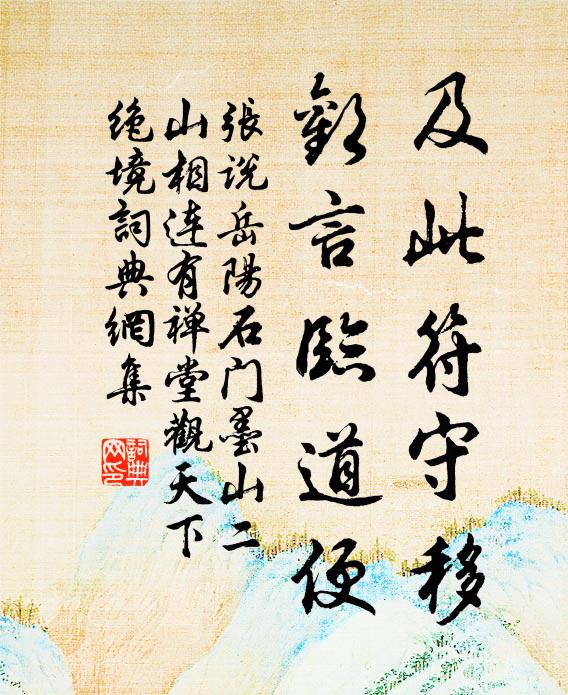 及此符守移
歡言臨道便
張說岳陽石門墨山二
山相連有禪堂觀天下
絕境詞典網集
詞典网印